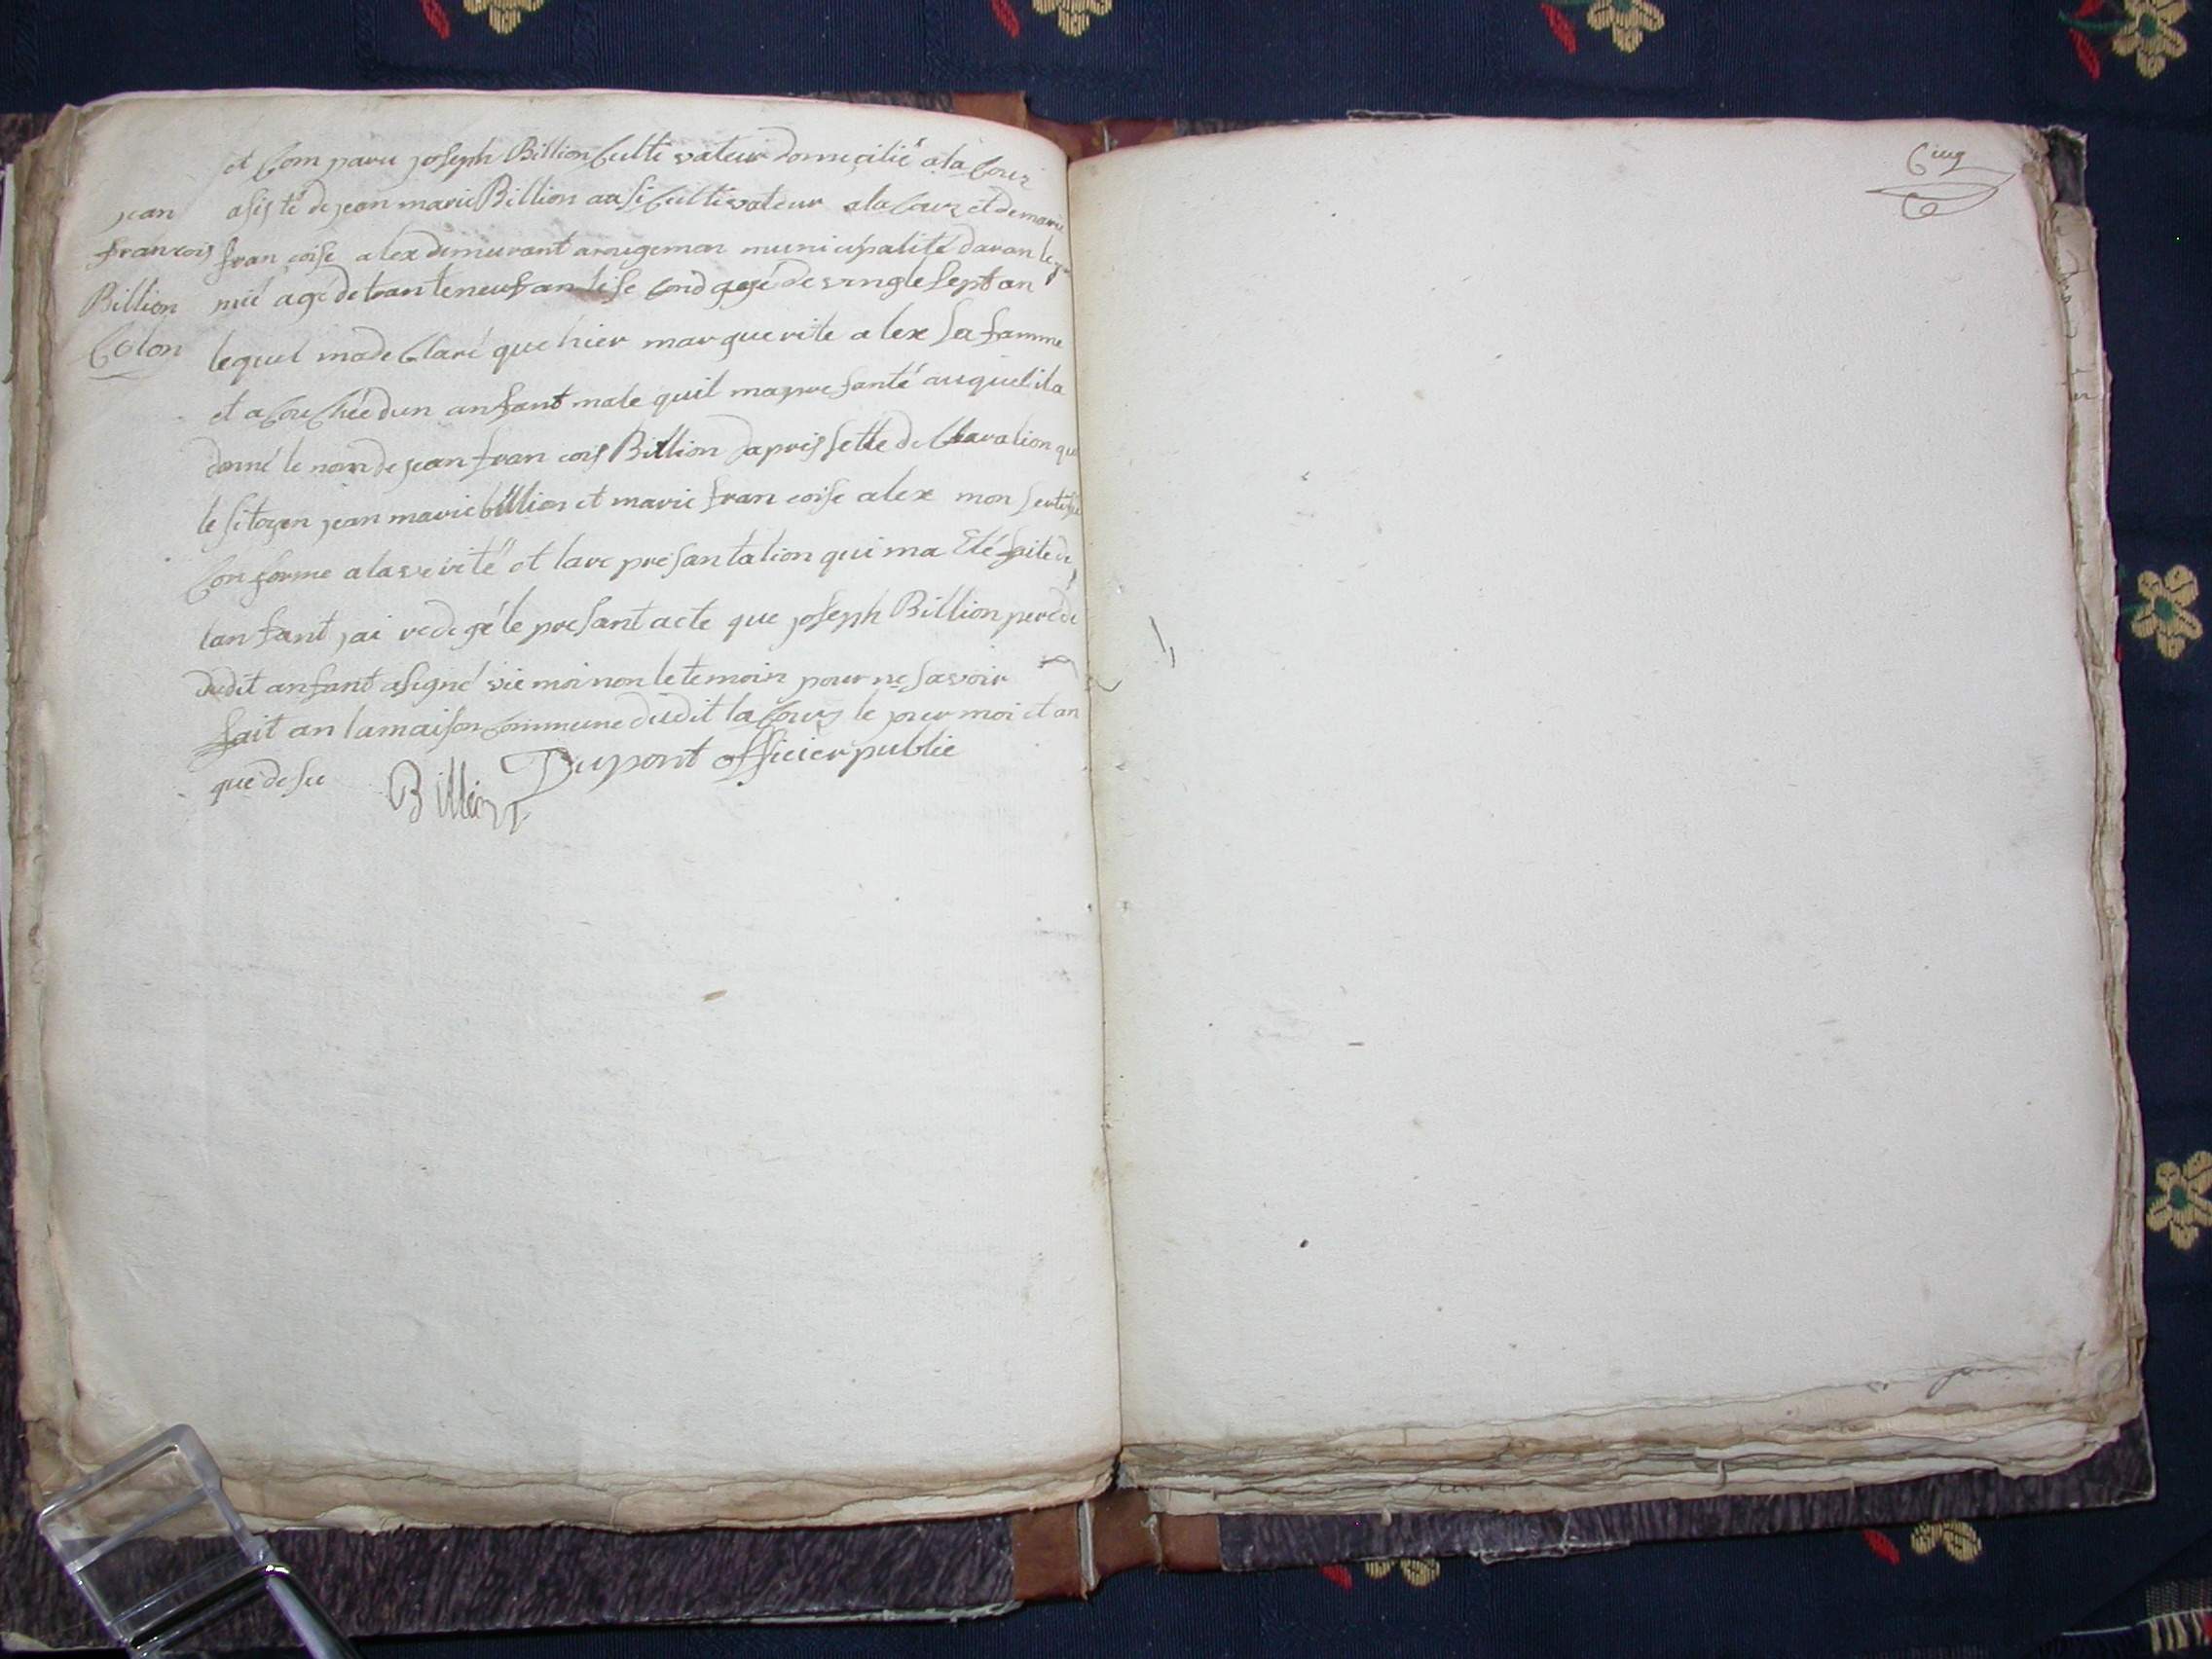 et Com paru joseph Billion Culti vateur domicilié a la Cour
jean
asisté de jean marie Billion ausi Cultivateur a la Cour et de marie
francois
fran coise alex demurant arougemon municipalité davan le pre
Billion
mié agé de trante neuf an le se Cond agé de vingte sept an
Colon
lequel ma de Claré que hier marguerite alex sa famme
et a Cou Chée dun anfant male quil ma pre santé auquel il a
donné le nom de jean fran cois Billion dapres sette de Claration que
le sitoyen jean marie billion et marie fran coise alex mon sertifié
Conforme a la verité et la re presantation qui ma Eté faite de
lanfant jai redegé le presant acte que joseph Billion pere de
dudit anfant a signé vie moi non le temoin pour ne savoir
fait an la maison Commune dudit la Cour le jour moi et an
que desu
Dupont officier public
Billion
Cinq